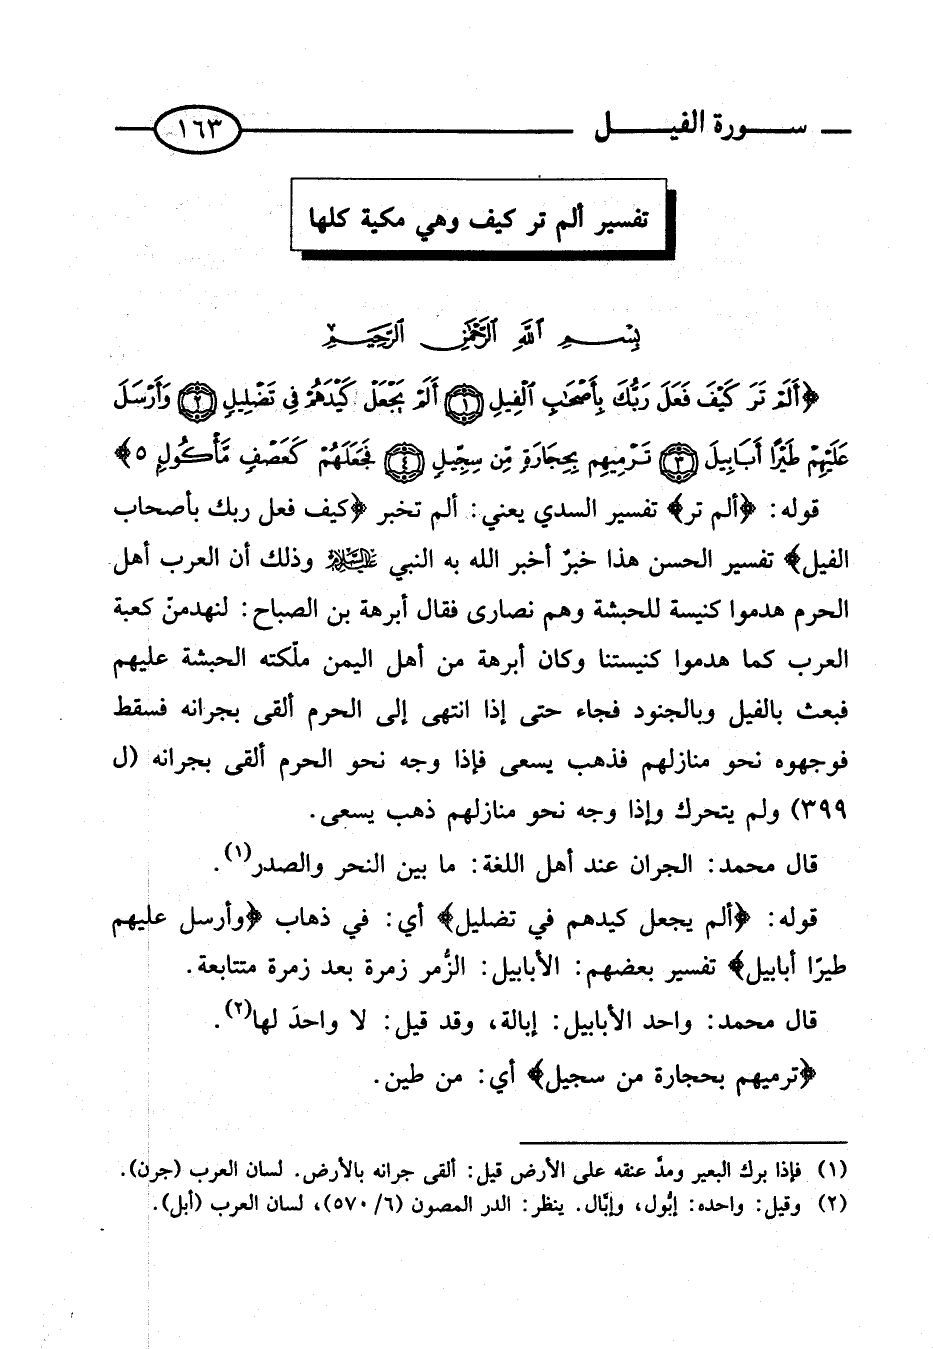 سورة الفيل ١٦٣
تفسير ألم تر كيف وهي مكية كلها
بِسْمِ اللَّهِ الرَّحْمَنِ الرَّحِيمِ
﴿أَلَمْ تَرَ كَيْفَ فَعَلَ رَبُّكَ بِأَصْحَٰبِ ٱلْفِيلِ ١ أَلَمْ يَجْعَلْ كَيْدَهُمْ فِى تَضْلِيلٍ ٢ وَأَرْسَلَ
عَلَيْهِمْ طَيْرًا أَبَابِيلَ ٣ تَرْمِيهِم بِحِجَارَةٍ مِّن سِجِّيلٍ ٤ فَجَعَلَهُمْ كَعَصْفٍ مَّأْكُولٍ ٥﴾
قوله: ﴿ألم تر﴾ تفسير السدي يعني: ألم تخبر ﴿كيف فعل ربك بأصحاب
الفيل﴾ تفسير الحسن هذا خبرٌ أخبر الله به النبي عليه السلام وذلك أن العرب أهل
الحرم هدموا كنيسة للحبشة وهم نصارى فقال أبرهة بن الصباح: لنهدمنّ كعبة
العرب كما هدموا كنيستنا وكان أبرهة من أهل اليمن ملّكته الحبشة عليهم
فبعث بالفيل وبالجنود فجاء حتى إذا انتهى إلى الحرم ألقى بجرانه فسقط
فوجهوه نحو منازلهم فذهب يسعى فإذا وجه نحو الحرم ألقى بجرانه (ل
٣٩٩) ولم يتحرك وإذا وجه نحو منازلهم ذهب يسعى.
قال محمد: الجران عند أهل اللغة: ما بين النحر والصدر(١).
قوله: ﴿ألم يجعل كيدهم في تضليل﴾ أي: في ذهاب ﴿وأرسل عليهم
طيرًا أبابيل﴾ تفسير بعضهم: الأبابيل: الزُّمر زمرة بعد زمرة متتابعة.
قال محمد: واحد الأبابيل: إبالة، وقد قيل: لا واحدَ لها(٢).
﴿ترميهم بحجارة من سجيل﴾ أي: من طين.
(١) فإذا برك البعير ومدَّ عنقه على الأرض قيل: ألقى جرانه بالأرض. لسان العرب (جرن).
(٢) وقيل: واحده: إبُّول، وإبَّال. ينظر: الدر المصون (٥٧٠/٦)، لسان العرب (أبل).